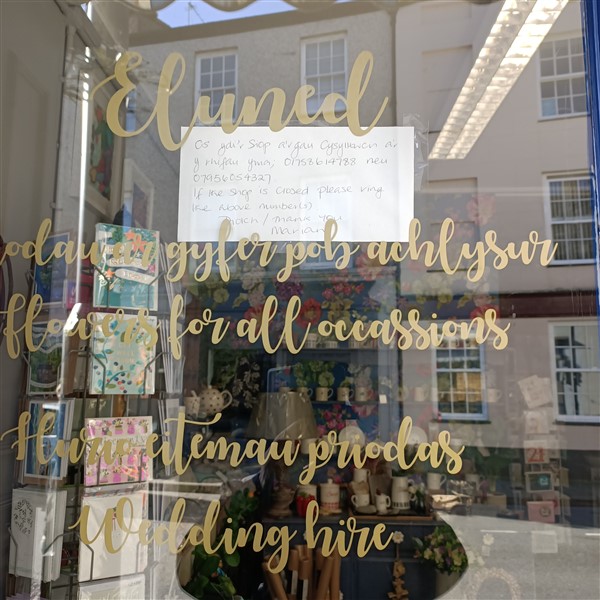 Eluned
Os ydi'r Siop ar gau Cysylltwch a'r
y rhifau yma; 01758614788 neu
07956054327
If the shop is closed please ring
the above number(s)
Diolch / Thank you
Marian
odau ar gyfer pob achlysur
flowers for all occassions
Hurio eitemau priodas
Wedding hire